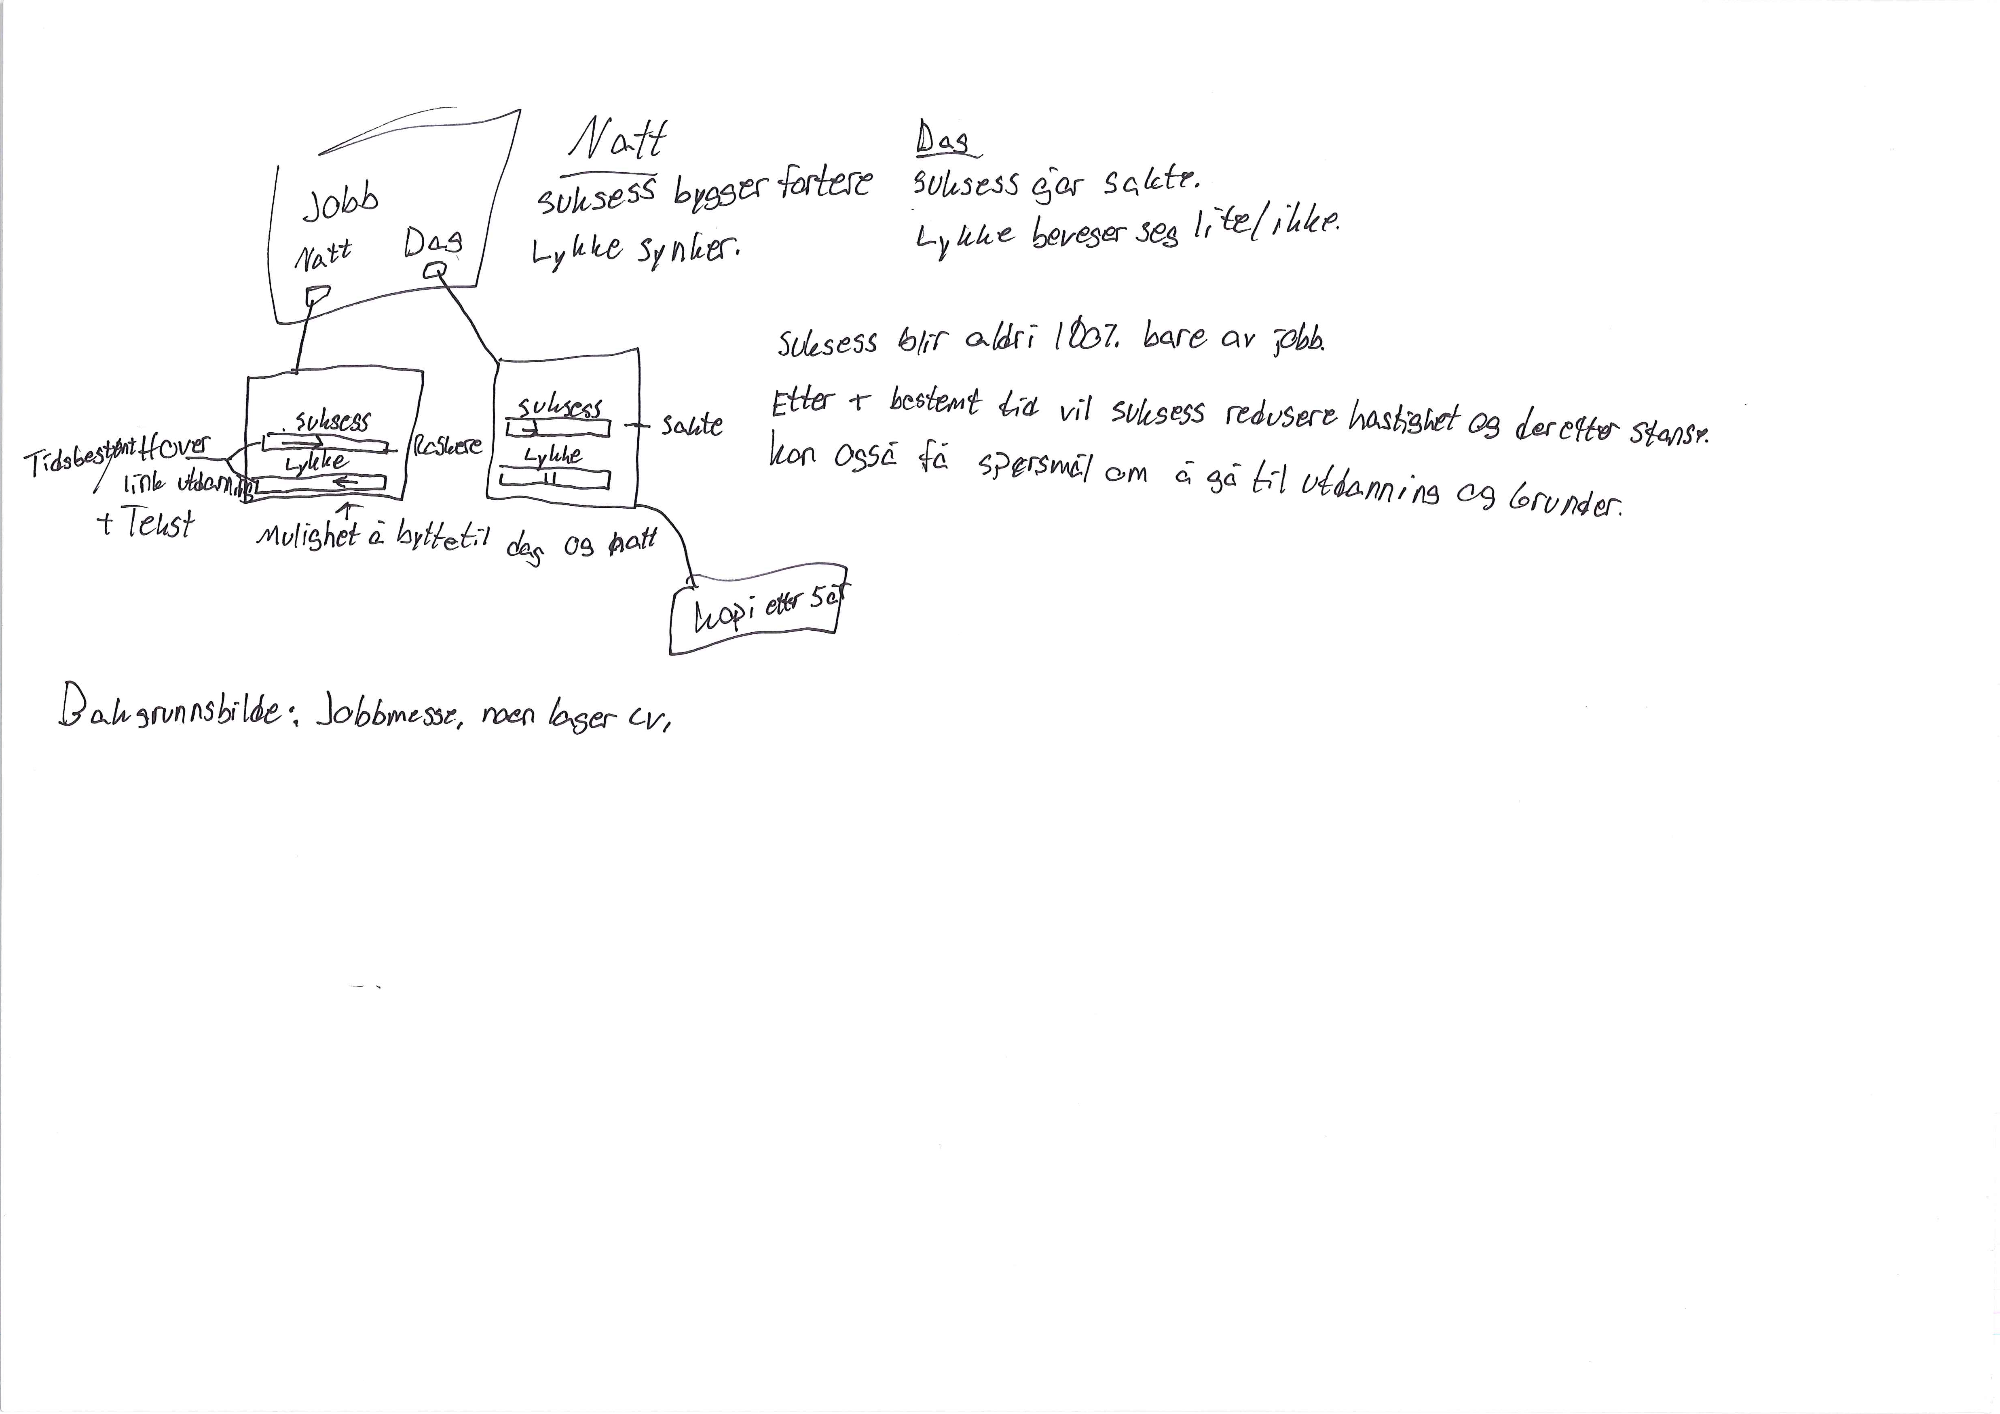 Natt
suksess bygger fortere
Lykke synker.
Dag
suksess går sakte.
Lykke beveger seg lite/ikke.
Jobb
Natt Dag
suksess blir aldri 100% bare av jobb.
Etter + bestemt tid vil suksess redusere hastighet og deretter stanse.
kan også få spørsmål om å gå til utdanning og Grunder.
suksess
Raskere
Lykke
suksess
Sakte
Lykke
Tidsbestemt Hover
link utdanning
+ Tekst
Mulighet å bytte til dag og natt
kopi etter 5 år
Bakgrunnsbilde: Jobbmesse, noen lager cv,